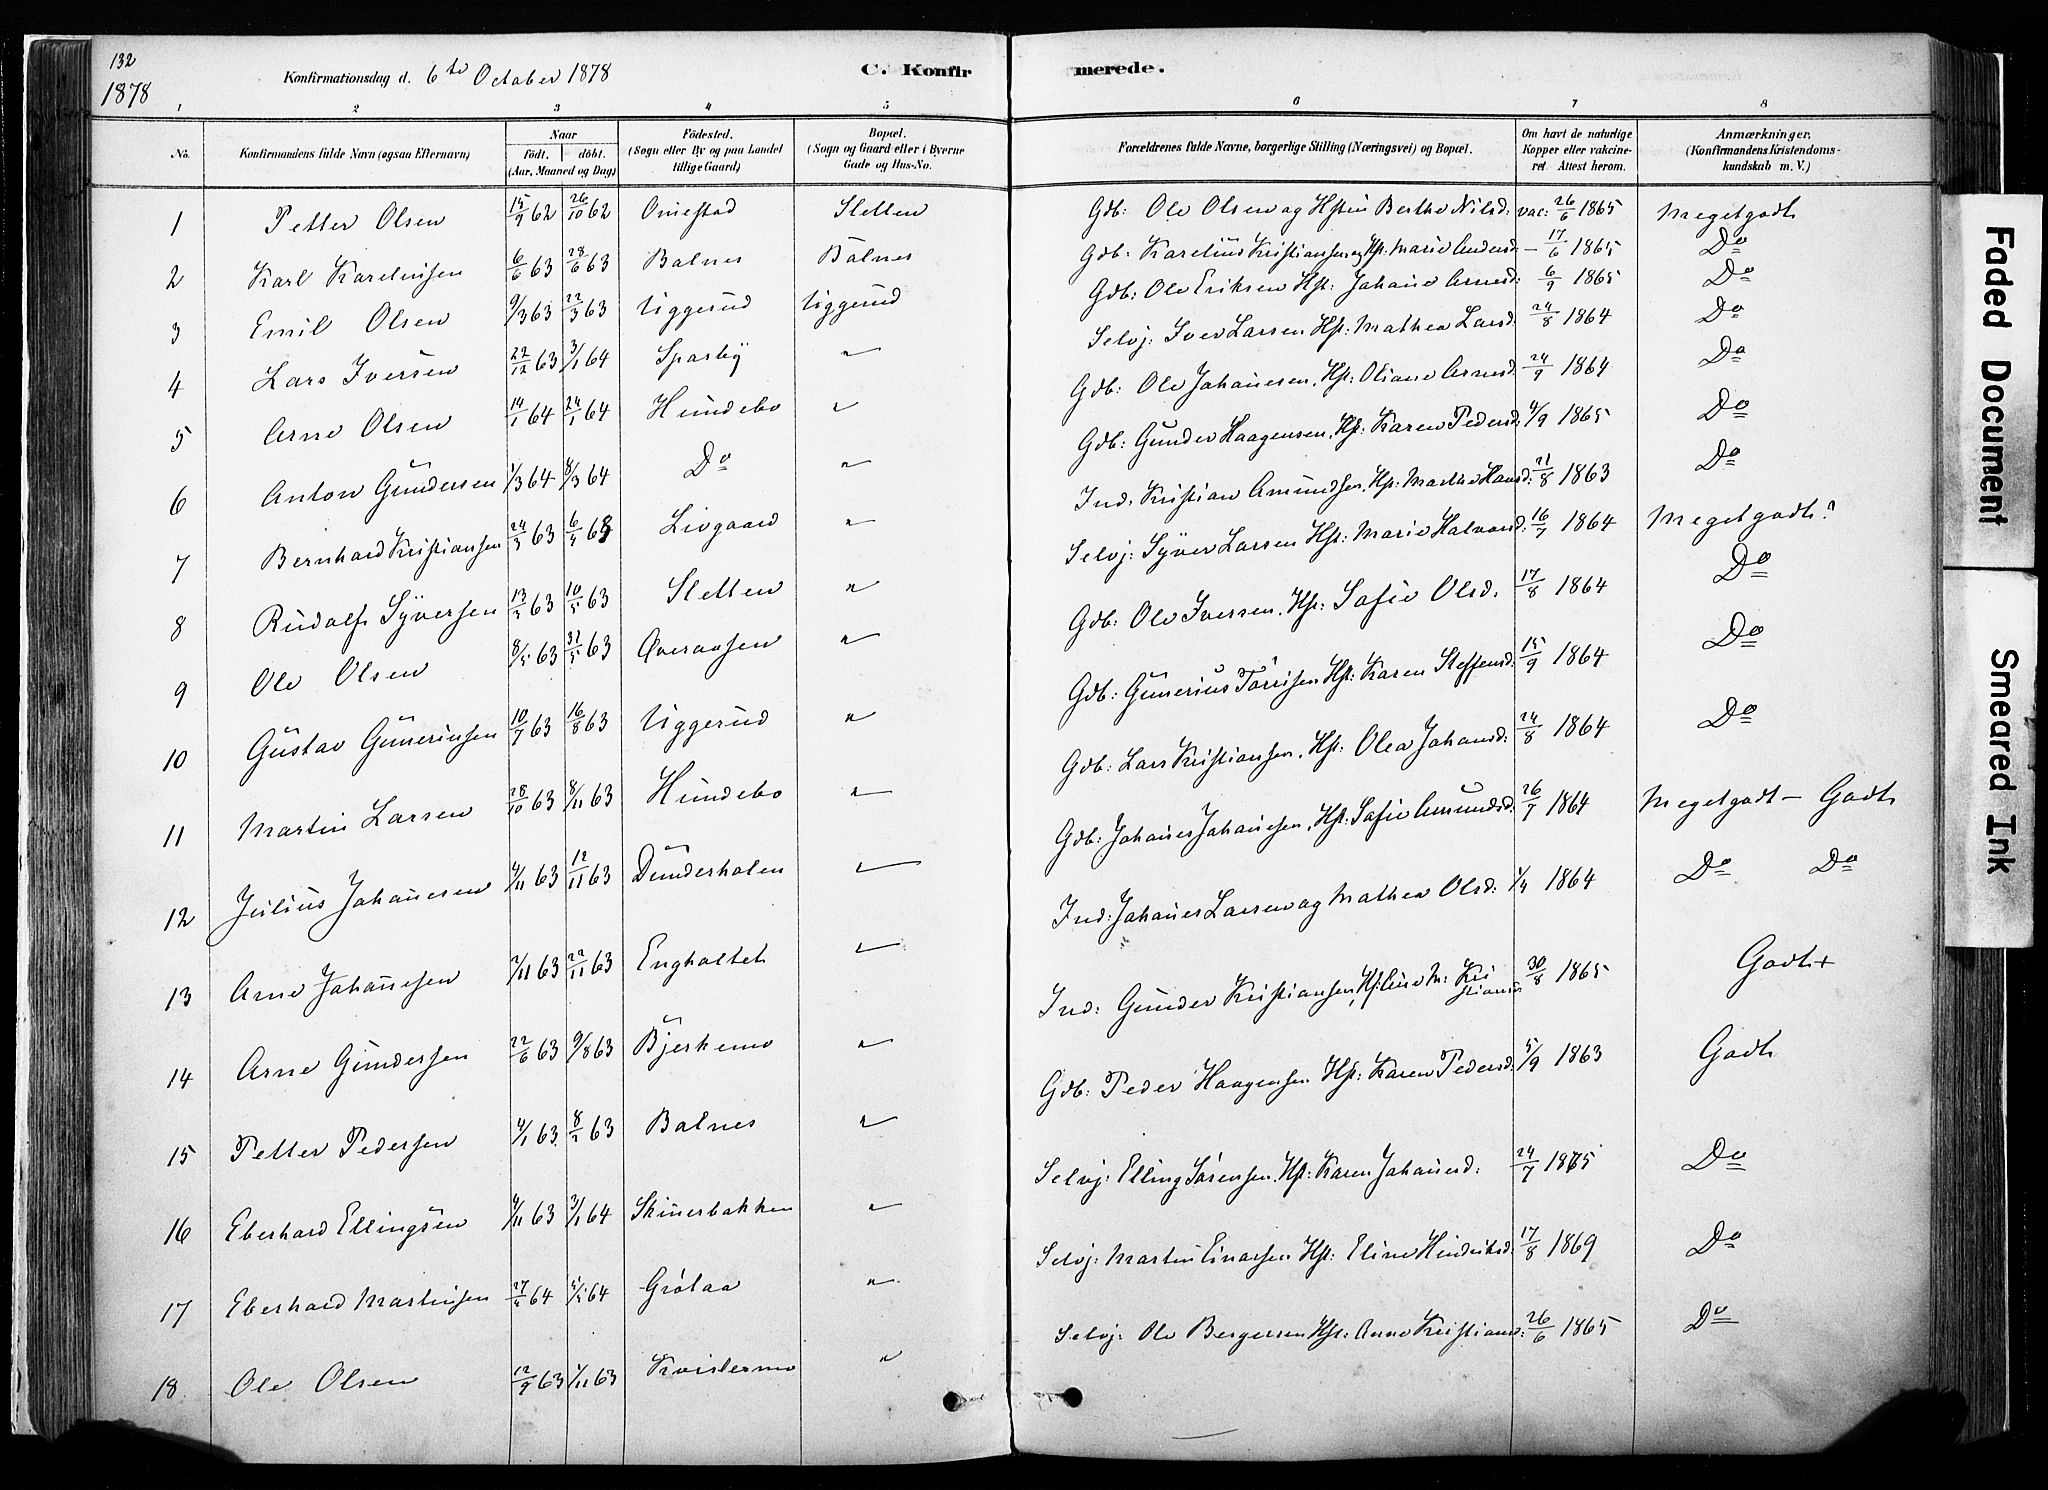 132
1878
Konfirmationsdag d. 6te October 1878
C. Konfir
merede.
1 2 3 4 5 6 7 8
No.
Konfirmandens fulde Navn (ogsaa Efternavn)
Naar
Födt. döbt.
(Aar, Maaned og Dag)
Födested.
(Sogn eller By og paa Landet
tillige Gaard)
Bopæl.
(Sogn og Gaard eller i Byerne
Gade og Hus-No.
Forældrenes fulde Navne, borgerlige Stilling (Næringsvei) og Bopæl.
Om havt de naturlige
Kopper eller vakcine-
ret. Attest herom.
Anmærkninger,
(Konfirmandens Kristendoms-
kundskab m. V.)
1 Petter Olsen 15/9 62 26/10 62 Omestad Sletten Gdb: Ole Olsen og Hstru Berthe Nilsd: vac: 26/6 1865 Megetgodt
2 Karl Karelinsen 6/6 63 28/6 63 Balnes Balnes Gdb: Karelius Kristiansen og Hst: Marie Andersd — 17/6 1865 Do
3 Emil Olsen 9/3 63 22/3 63 Viggerud Viggerud Gdb: Ole Eriksen Hst: Johane Arnesd: 6/9 1865 Do
4 Lars Iversen 22/12 63 3/1 64 Sparby " Selvj: Iver Larsen Hst: Mathea Larsd. 24/8 1864 Do
5 Arne Olsen 14/1 64 24/1 64 Hundebo " Gdb: Ole Johanesen, Hst: Oliane Arnesd 24/9 1864 Do
6 Anton Gundersen 1/3 64 8/3 64 Do " Gdb: Gunder Haagensen, Hst: Karen Pedersd 4/9 1865 Do
7 Bernhard Kristiansen 24/3 63 6/4 63 Livgaard " Ind: Kristian Amundsen, Hst: Marthe Hansd: 21/8 1863 Do
8 Rudolf Syversen 13/3 63 10/5 63 Sletten " Selvj: Syver Larsen Hst: Marie Halvorsd: 16/7 1864 Megetgodt?
9 Ole Olsen 8/5 63 31/5 63 Overaasen " Gdb: Ole Iversen, Hst: Sofie Olsd. 17/8 1864 Do
10 Gustav Gunerinsen 10/7 63 16/8 63 Viggerud " Gdb: Gunerius Torrisen Hst: Karen Steffensd: 15/9 1864 Do
11 Martin Larsen 28/10 63 8/11 63 Hundebo " Gdb: Lars Kristiansen, Hst: Olea Johansd: 24/8 1864 Do
12 Julius Johanesen 4/11 63 12/11 63 Dunderholen " Gdb: Johanes Johanesen, Hst: Sofie Amundsd. 26/7 1864 Megetgodt — Godt
13 Arne Johanesen 2/11 63 22/11 63 Engholtet " Ind: Johanes Larsen og Mathea Olsd: 1/4 1864 Do Do
14 Arne Gundersen 22/6 63 9/8 63 Bjerkemo " Ind: Gunder Kristiansen, Hst: Line M: Kri
stiansd 30/8 1865 Godt+
15 Petter Pedersen 4/1 63 8/2 63 Balnes " Gdb: Peder Haagensen Hst: Karen Pedersd. 5/9 1863 Godt
16 Eberhard Ellingsen 4/11 63 3/1 64 Skinerbakken " Selvj: Elling Sörensen, Hst: Karen Johanesd: 24/7 1875 Do
17 Eberhard Martinsen 27/4 64 5/5 64 Grötaa " Selvj: Martin Einarsen Hst: Eline Hindriksd: 17/8 1869 Do
18 Ole Olsen 12/9 63 1/11 63 Kvislermo " Selvj: Ole Bergersen Hst: Anne Kristiansd: 26/6 1865 Do
Faded Document
Smeared Ink